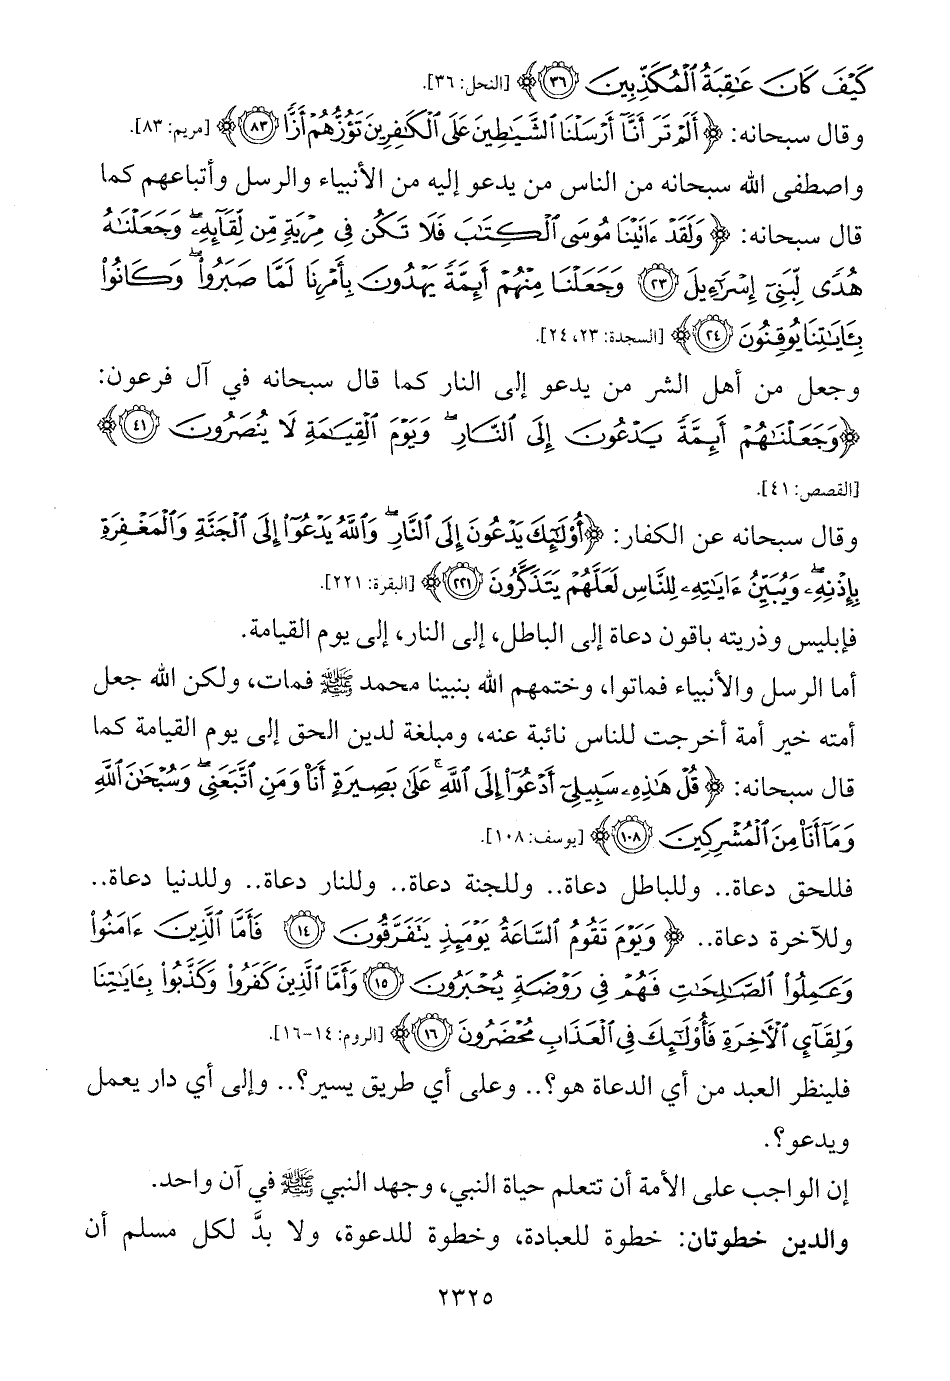 كَيْفَ كَانَ عَـٰقِبَةُ ٱلْمُكَذِّبِينَ ﴿٣٦﴾ [النحل: ٣٦].
وقال سبحانه: ﴿أَلَمْ تَرَ أَنَّآ أَرْسَلْنَا ٱلشَّيَـٰطِينَ عَلَى ٱلْكَـٰفِرِينَ تَؤُزُّهُمْ أَزًّا ﴿٨٣﴾﴾ [مريم: ٨٣].
واصطفى الله سبحانه من الناس من يدعو إليه من الأنبياء والرسل وأتباعهم كما
قال سبحانه: ﴿وَلَقَدْ ءَاتَيْنَا مُوسَى ٱلْكِتَـٰبَ فَلَا تَكُن فِى مِرْيَةٍ مِّن لِّقَآئِهِۦ ۖ وَجَعَلْنَـٰهُ
هُدًى لِّبَنِىٓ إِسْرَٰٓءِيلَ ﴿٢٣﴾ وَجَعَلْنَا مِنْهُمْ أَئِمَّةً يَهْدُونَ بِأَمْرِنَا لَمَّا صَبَرُوا۟ ۖ وَكَانُوا۟
بِـَٔايَـٰتِنَا يُوقِنُونَ ﴿٢٤﴾﴾ [السجدة: ٢٣، ٢٤].
وجعل من أهل الشر من يدعو إلى النار كما قال سبحانه في آل فرعون:
﴿وَجَعَلْنَـٰهُمْ أَئِمَّةً يَدْعُونَ إِلَى ٱلنَّارِ ۖ وَيَوْمَ ٱلْقِيَـٰمَةِ لَا يُنصَرُونَ ﴿٤١﴾﴾
[القصص: ٤١].
وقال سبحانه عن الكفار: ﴿أُو۟لَـٰٓئِكَ يَدْعُونَ إِلَى ٱلنَّارِ ۖ وَٱللَّهُ يَدْعُوٓا۟ إِلَى ٱلْجَنَّةِ وَٱلْمَغْفِرَةِ
بِإِذْنِهِۦ ۖ وَيُبَيِّنُ ءَايَـٰتِهِۦ لِلنَّاسِ لَعَلَّهُمْ يَتَذَكَّرُونَ ﴿٢٢١﴾﴾ [البقرة: ٢٢١].
فإبليس وذريته باقون دعاة إلى الباطل، إلى النار، إلى يوم القيامة.
أما الرسل والأنبياء فماتوا، وختمهم الله بنبينا محمد ﷺ فمات، ولكن الله جعل
أمته خير أمة أخرجت للناس نائبة عنه، ومبلغة لدين الحق إلى يوم القيامة كما
قال سبحانه: ﴿قُلْ هَـٰذِهِۦ سَبِيلِىٓ أَدْعُوٓا۟ إِلَى ٱللَّهِ ۚ عَلَىٰ بَصِيرَةٍ أَنَا۠ وَمَنِ ٱتَّبَعَنِى ۖ وَسُبْحَـٰنَ ٱللَّهِ
وَمَآ أَنَا۠ مِنَ ٱلْمُشْرِكِينَ ﴿١٠٨﴾﴾ [يوسف: ١٠٨].
فللحق دعاة.. وللباطل دعاة.. وللجنة دعاة.. وللنار دعاة.. وللدنيا دعاة..
وللآخرة دعاة.. ﴿وَيَوْمَ تَقُومُ ٱلسَّاعَةُ يَوْمَئِذٍ يَتَفَرَّقُونَ ﴿١٤﴾ فَأَمَّا ٱلَّذِينَ ءَامَنُوا۟
وَعَمِلُوا۟ ٱلصَّـٰلِحَـٰتِ فَهُمْ فِى رَوْضَةٍ يُحْبَرُونَ ﴿١٥﴾ وَأَمَّا ٱلَّذِينَ كَفَرُوا۟ وَكَذَّبُوا۟ بِـَٔايَـٰتِنَا
وَلِقَآئِ ٱلْـَٔاخِرَةِ فَأُو۟لَـٰٓئِكَ فِى ٱلْعَذَابِ مُحْضَرُونَ ﴿١٦﴾﴾ [الروم: ١٤-١٦].
فلينظر العبد من أي الدعاة هو؟.. وعلى أي طريق يسير؟.. وإلى أي دار يعمل
ويدعو؟.
إن الواجب على الأمة أن تتعلم حياة النبي، وجهد النبي ﷺ في آن واحد.
والدين خطوتان: خطوة للعبادة، وخطوة للدعوة، ولا بدَّ لكل مسلم أن
٢٣٢٥